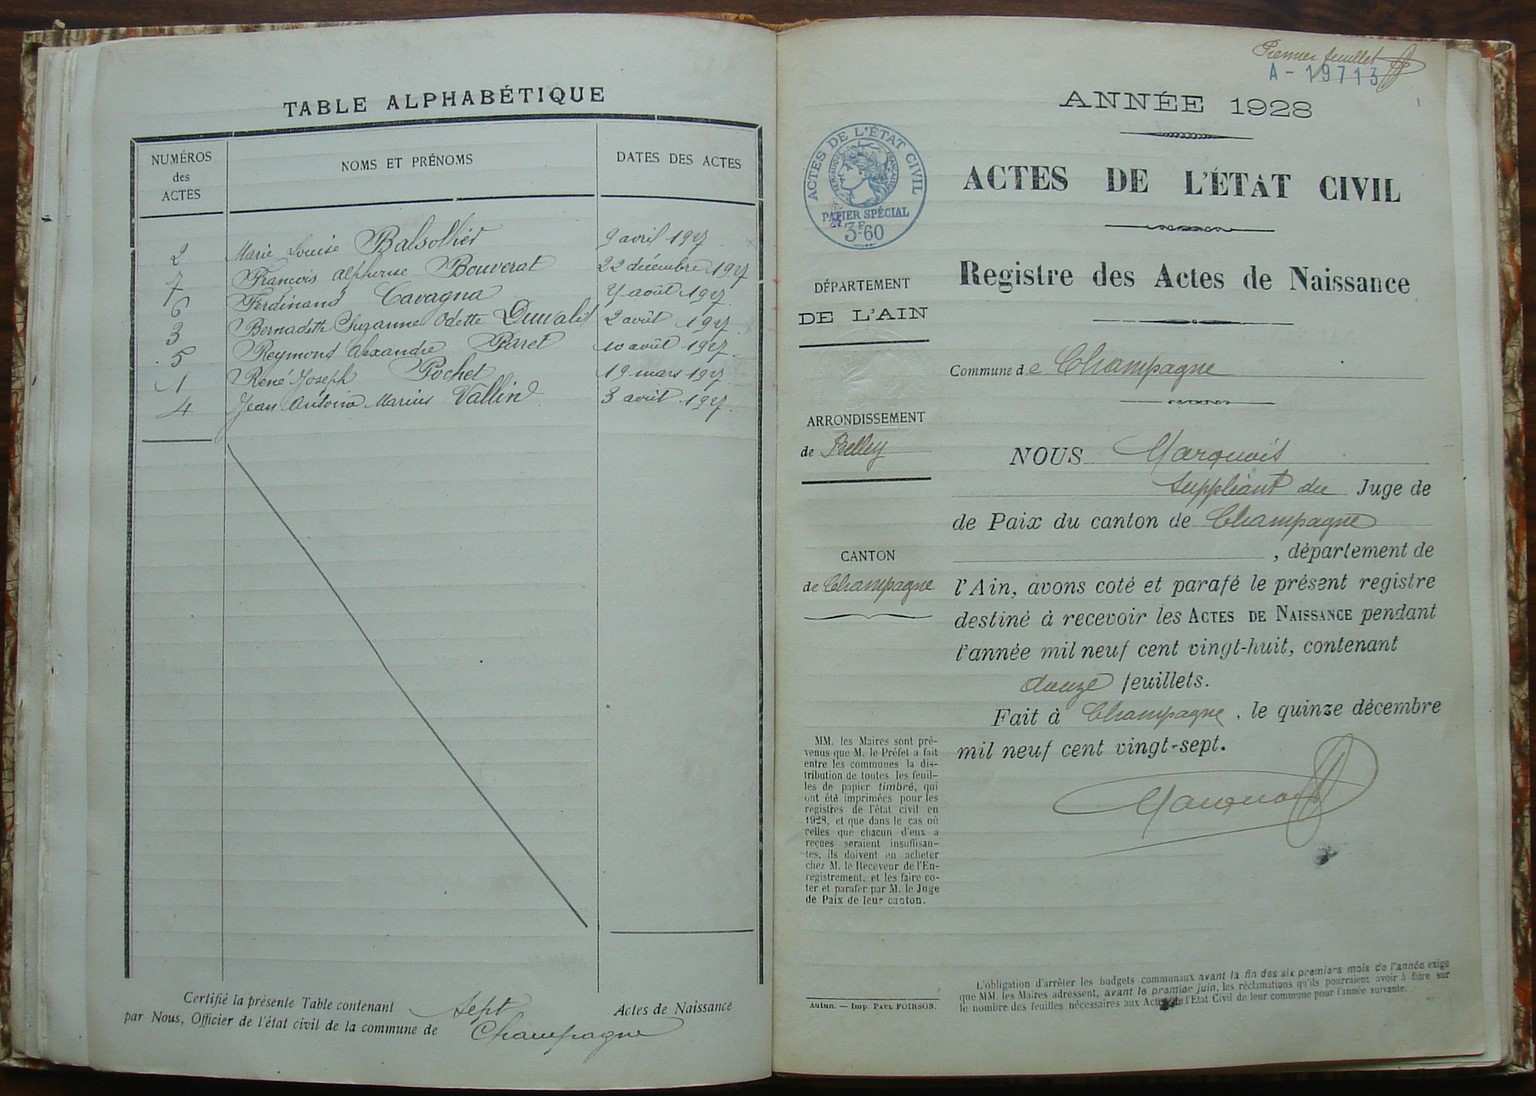 TABLE ALPHABÉTIQUE
NUMÉROS des ACTES
NOMS ET PRÉNOMS
DATES DES ACTES
2 Marie Louise 9 avril 1927
7 François Alphonse Bouverat 22 décembre 1927
6 Ferdinand Cavagna août 1927
3 Bernadette Suzanne Odette 2 avril 1927
5 Reymond Alexandre Perret 10 août 1927
1 René Joseph Pochet 19 mars 1927
4 Jean Antoine Marius Vallin 3 avril 1927
Certifié la présente Table contenant Sept Actes de Naissance
par Nous, Officier de l'état civil de la commune de Champagne
Premier feuillet
A - 19713
ANNÉE 1928
ACTES DE L'ÉTAT CIVIL
PAPIER SPÉCIAL
3F60
ACTES DE L'ÉTAT CIVIL
Registre des Actes de Naissance
DÉPARTEMENT
DE L'AIN
Commune de Champagne
ARRONDISSEMENT
de Belley
CANTON
de Champagne
NOUS Marquois
suppléant du Juge de
de Paix du canton de Champagne
, département de
l'Ain, avons coté et parafé le présent registre
destiné à recevoir les ACTES DE NAISSANCE pendant
l'année mil neuf cent vingt-huit, contenant
douze feuillets.
Fait à Champagne, le quinze décembre
mil neuf cent vingt-sept.
MM. les Maires sont pré-
venus que M. le Préfet a fait
entre les communes la dis-
tribution de toutes les feuil-
les de papier timbré, qui
ont été imprimées pour les
registres de l'état civil en
1928, et que dans le cas où
celles que chacun d'eux a
reçues seraient insuffisan-
tes, ils doivent en acheter
chez M. le Receveur de l'En-
registrement, et les faire co-
ter et parafer par M. le Juge
de Paix de leur canton.
Autun. — Imp. PAUL POIRSON.
L'obligation d'arrêter les budgets communaux avant la fin des six premiers mois de l'année exige
que MM. les Maires adressent, avant le premier juin, les réclamations qu'ils pourraient avoir à faire sur
le nombre des feuilles nécessaires aux Actes de l'Etat Civil de leur commune pour l'année suivante.